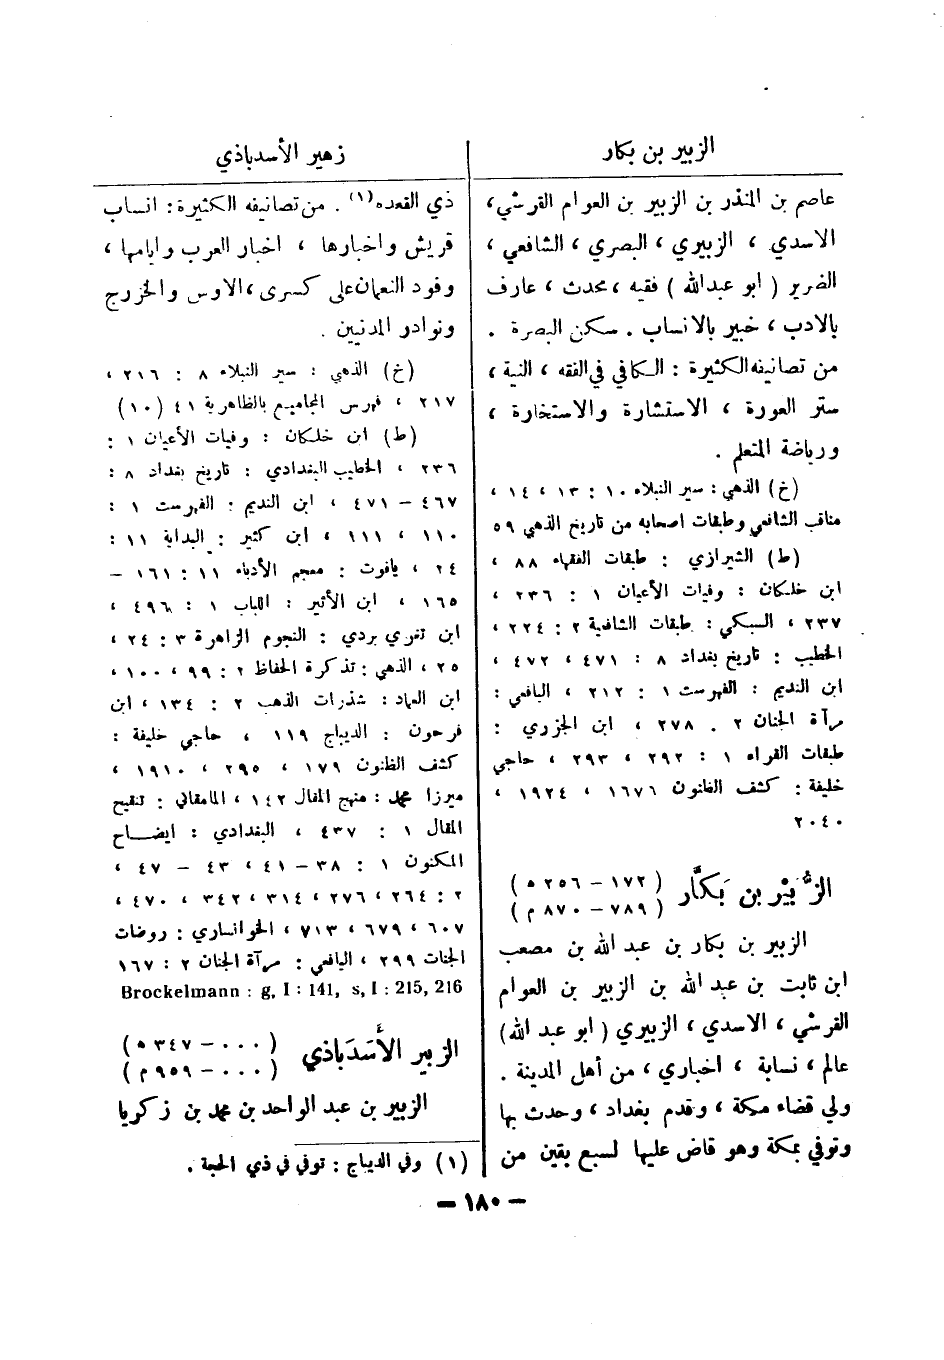 الزبير بن بكار
زهير الأسدباذي
عاصم بن المنذر بن الزبير بن العوام القرشي،
الاسدي ، الزبيري ، البصري ، الشافعي ،
الضرير ( ابو عبدالله ) فقيه ، محدث ، عارف
بالادب ، خبير بالانساب . سكن البصرة .
من تصانيفه الكثيرة : الكافي في الفقه ، النية ،
ستر العورة ، الاستشارة والاستخارة ،
ورياضة المتعلم .
(خ) الذهبي : سير النبلاء ١٠ : ١٣ ، ١٤ ،
مناقب الشافعي وطبقات اصحابه من تاريخ الذهبي ٥٩
(ط) الشيرازي : طبقات الفقهاء ٨٨ ،
ابن خلكان : وفيات الأعيان ١ : ٢٣٦ ،
٢٣٧ ، السبكي : طبقات الشافعية ٢ : ٢٢٤ ،
الخطيب : تاريخ بغداد ٨ : ٤٧١ ، ٤٧٢ ،
ابن النديم : الفهرست ١ : ٢١٢ ، اليافعي :
مرآة الجنان ٢ . ٢٧٨ ، ابن الجزري :
طبقات القراء ١ : ٢٩٢ ، ٢٩٣ ، حاجي
خليفة : كشف الظنون ١٦٧٦ ، ١٩٢٤ ،
٢٠٤٠
الزُّبَيْر بن بَكَّار ( ١٧٢ - ٢٥٦ ه )
( ٧٨٩ - ٨٧٠ م )
الزبير بن بكار بن عبد الله بن مصعب
ابن ثابت بن عبد الله بن الزبير بن العوام
القرشي ، الاسدي ، الزبيري ( ابو عبد الله )
عالم ، نسابة ، اخباري ، من أهل المدينة .
ولي قضاء مكة ، وقدم بغداد ، وحدث بها
وتوفي بمكة وهو قاض عليها لسبع بقين من
ذي القعده (١) . من تصانيفه الكثيرة : انساب
قريش واخبارها ، اخبار العرب وايامها ،
وفود النعمان على كسرى ، الاوس والخزرج
ونوادر المدنيين .
(خ) الذهبي : سير النبلاء ٨ : ٢١٦ ،
٢١٧ ، فهرس المجاميع بالظاهرية ٤١ (١٠)
(ط) ابن خلكان : وفيات الأعيان ١ :
٢٣٦ ، الخطيب البغدادي : تاريخ بغداد ٨ :
٤٦٧ - ٤٧١ ، ابن النديم : الفهرست ١ :
١١٠ ، ١١١ ، ابن كثير : البداية ١١ :
٢٤ ، ياقوت : معجم الأدباء ١١ : ١٦١ -
١٦٥ ، ابن الأثير : اللباب ١ : ٤٩٦ ،
ابن تغري بردي : النجوم الزاهرة ٣ : ٢٤ ،
٢٥ ، الذهبي : تذكرة الحفاظ ٢ : ٩٩ ، ١٠٠ ،
ابن العماد : شذرات الذهب ٢ : ١٣٤ ، ابن
فرحون : الديباج ١١٩ ، حاجي خليفة :
كشف الظنون ١٧٩ ، ٢٩٥ ، ١٩١٠ ،
ميرزا محمد : منهج المقال ١٤٢ ، المامقاني : تنقيح
المقال ١ : ٤٣٧ ، البغدادي : ايضاح
المكنون ١ : ٣٨ - ٤١ ، ٤٣ - ٤٧ ،
٢ : ٢٦٤ ، ٢٧٦ ، ٣١٤ ، ٣٤٢ ، ٤٧٠ ،
٦٠٧ ، ٦٧٩ ، ٧١٣ ، الخوانساري : روضات
الجنات ٢٩٩ ، اليافعي : مرآة الجنان ٢ : ١٦٧
Brockelmann : g, I : 141, s, I : 215, 216
الزبير الأَسَدَباذي ( ٠٠٠ - ٣٤٧ ه )
( ٠٠٠ - ٩٥٩ م )
الزبير بن عبد الواحد بن محمد بن زكريا
(١) وفي الديباج : توفي في ذي الحجة .
- ١٨٠ -